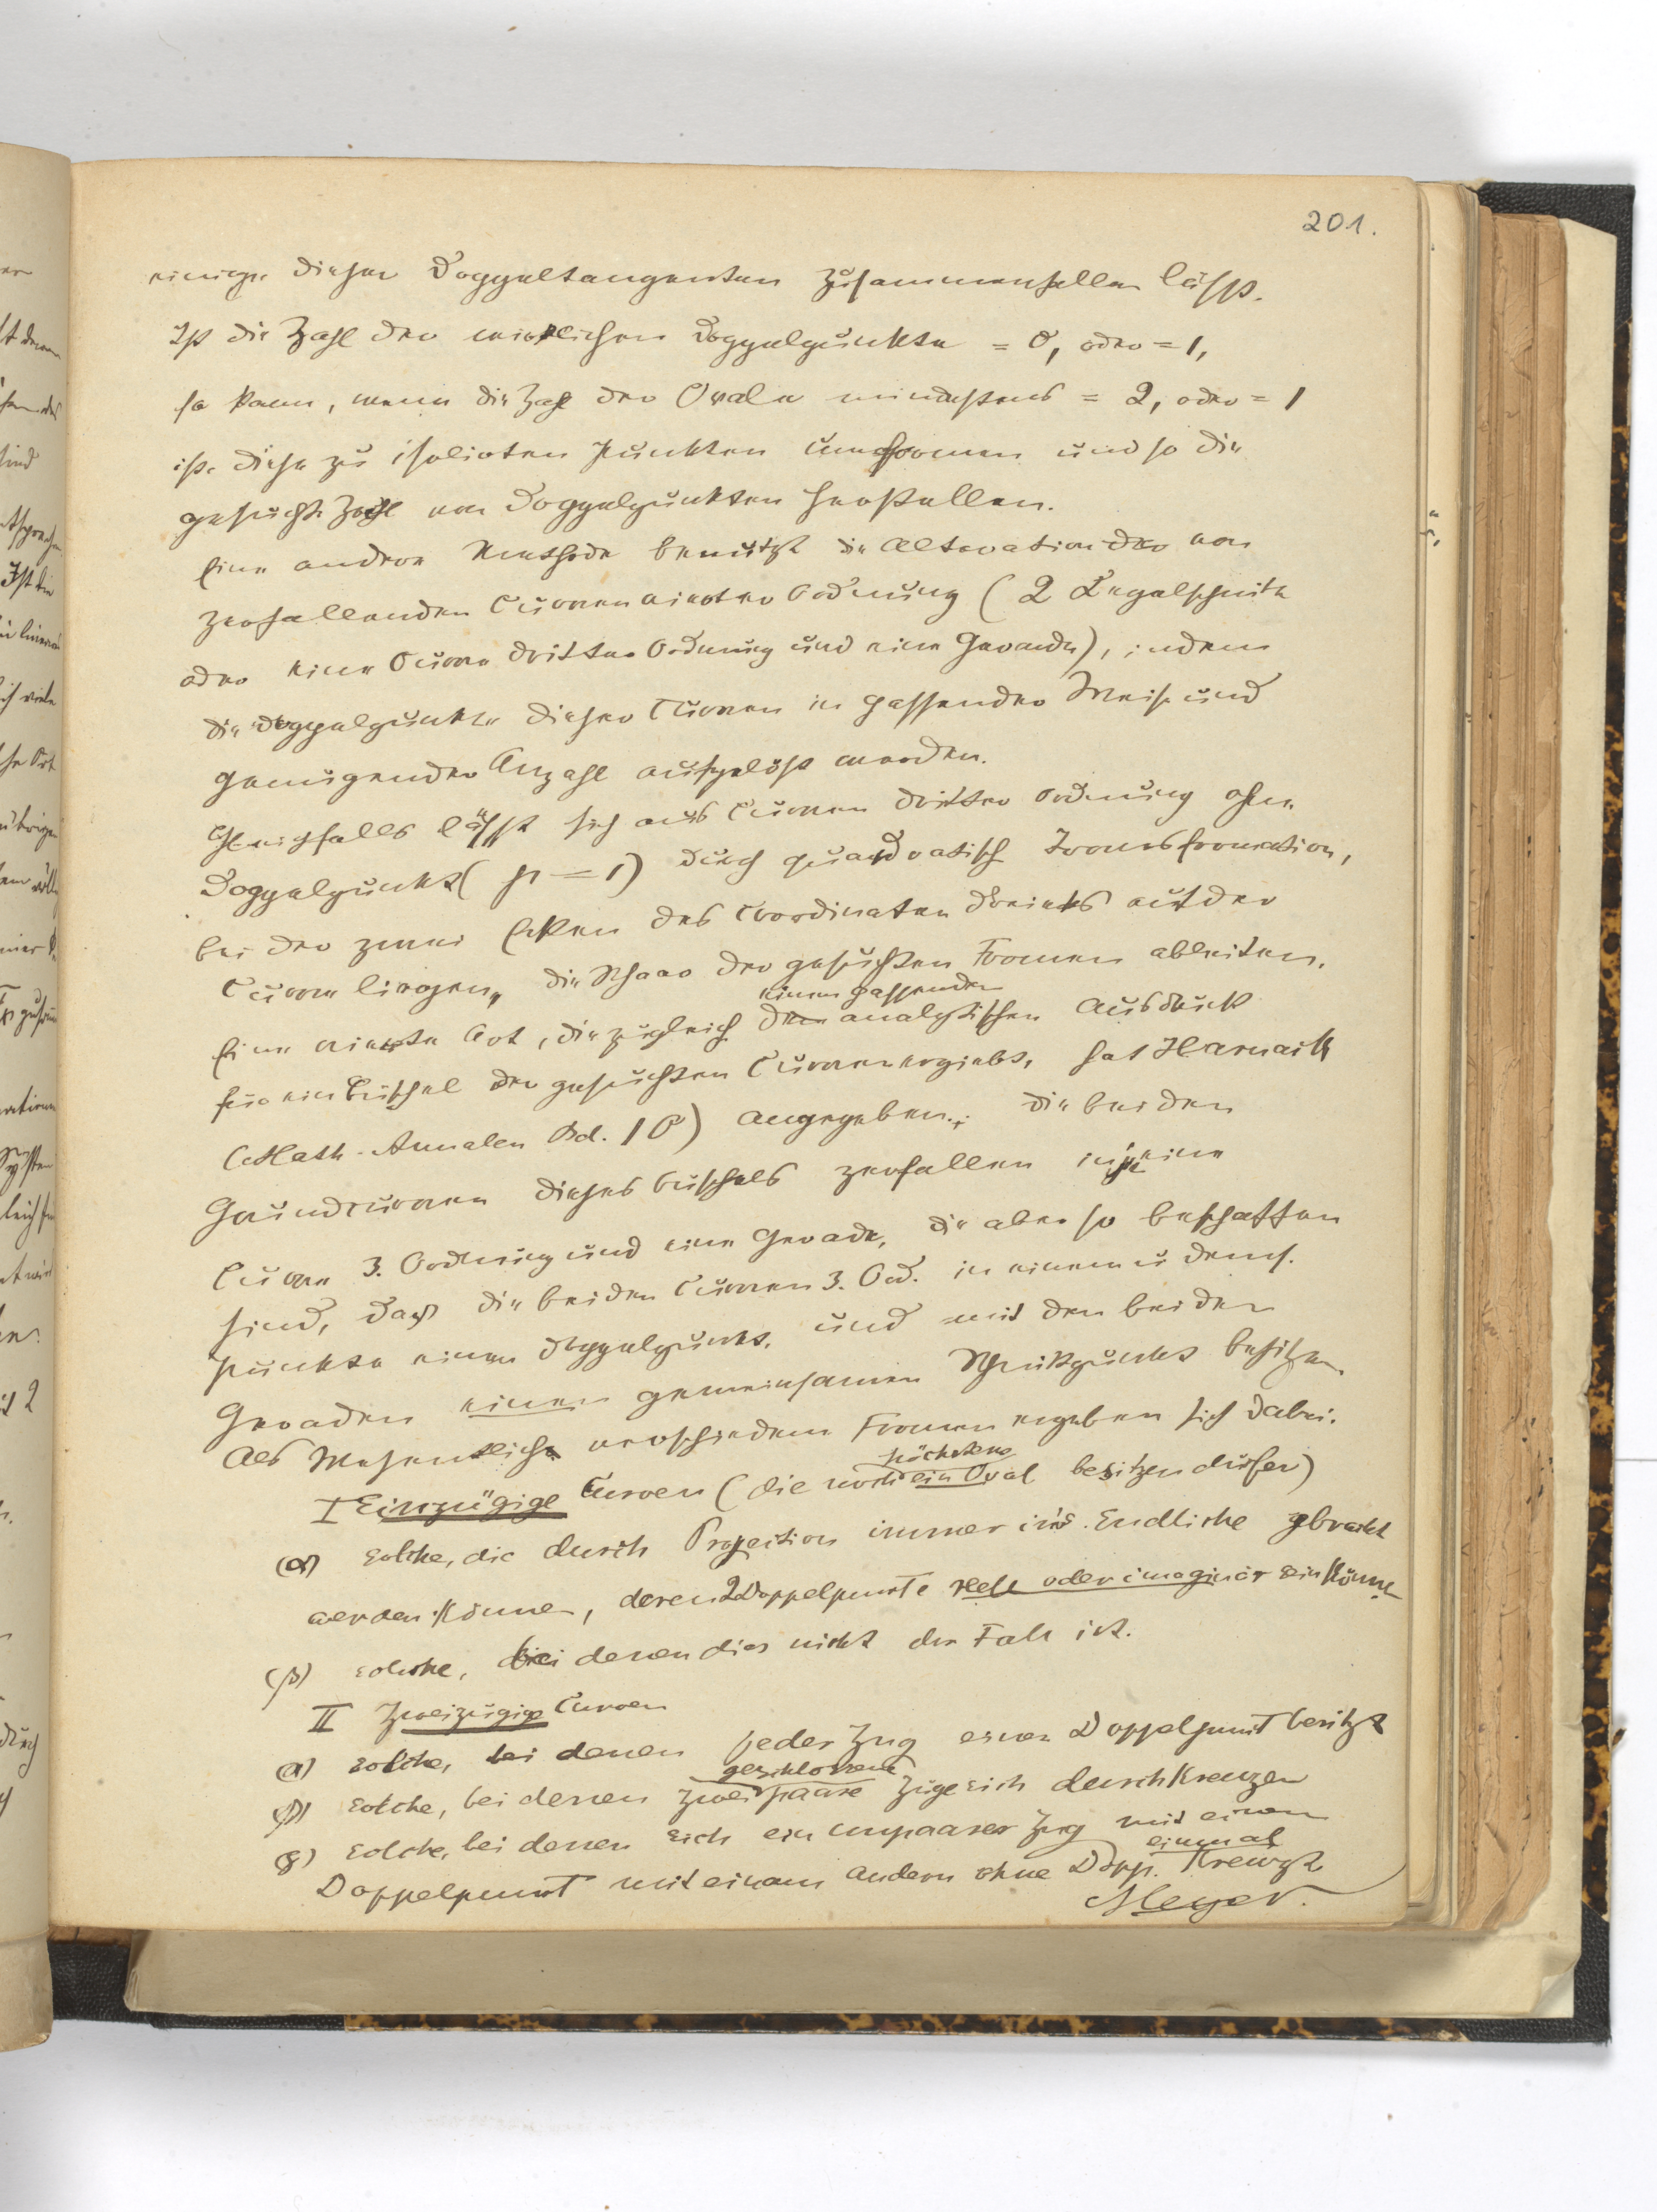 201.
einige dieser Doppeltangenten zusammenfallen lässt.
Ist die Zahl der wirklichen Doppelpunkte = 0, oder = 1,
so kann, wenn die Zahl der Ovale mindestens = 2, oder = 1
ist, diese zu isolirten Punkten umformen und so die
gesuchte Zahl von Doppelpunkten herstellen.
Eine andere Methode benützt die Alteration der von
zerfallenden Curven vierter Ordnung (2 Kegelschnitte
oder eine Curve dritter Ordnung und eine Gerade), indem
die Doppelpunkte dieser Curven in passender Weise und
genügender Anzahl aufgelöst werden.
Gleichfalls lässt sich aus Curven dritter Ordnung ohne
Doppelpunkt (p = 1) durch quadratische Transformation,
bei der zwei Ecken des Coordinaten Dreiecks auf der
Curve liegen, die Schaar der gesuchten Formen ableiten.
einen passenden
Eine vierte Art, die zugleich den analytischen Ausdruck
für ein Büschel der gesuchten Curven ergiebt, hat Harnack
(Math. Annalen Bd. 10) angegeben; die beiden
Grundcurven dieses Büschels zerfallen in je eine
Curve 3. Ordnung und eine Gerade, die aber so beschaffen
sind, dass die beiden Curven 3. Ord. in einem u dems.
Punkte einen Doppelpunkt, und mit den beiden
Geraden einen gemeinsamen Schnittpunkt besitzen.
Als Wesentliche verschiedene Formen ergeben sich dabei:
höchstens
I Einzügige Curven (die noch ein Oval besitzen dürfen)
(α) Solche, die durch Projection immer in's Endliche gebracht
werden können, deren 2 Doppelpunkte reell oder imaginär sein können
(β) solche, bei denen dies nicht der Fall ist.
II Zweizügige Curven
(α) Solche, bei denen jeder Zug einen Doppelpunkt besitzt
geschlossene
(β) Solche, bei denen zwei paare Züge sich durchkreuzen
(γ) Solche, bei denen sich ein unpaarer Zug mit einem
einmal
Doppelpunkt mit einem andern ohne Dopp. kreuzt
Meyer.